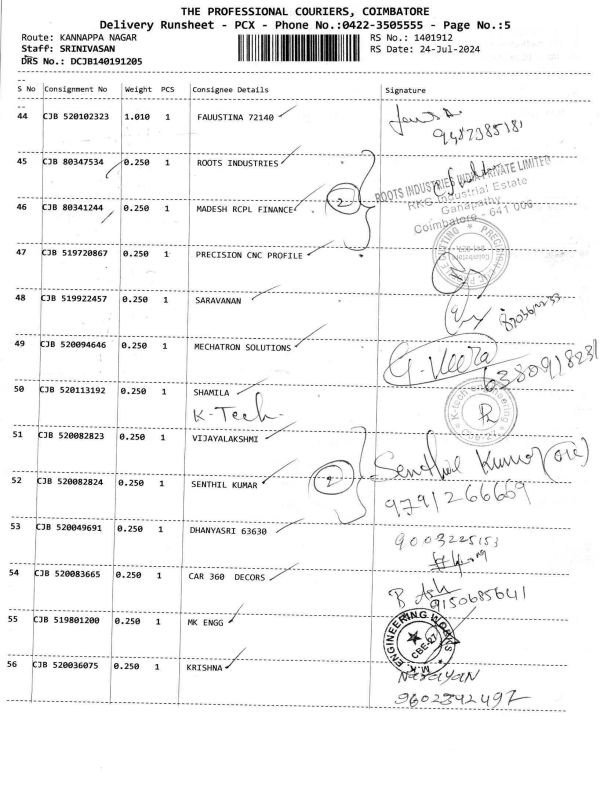 THE PROFESSIONAL COURIERS, COIMBATORE
Delivery Runsheet - PCX - Phone No.:0422-3505555 - Page No.:5
Route: KANNAPPA NAGAR RS No.: 1401912
Staff: SRINIVASAN RS Date: 24-Jul-2024
DRS No.: DCJB140191205
S No Consignment No Weight PCS Consignee Details Signature
44 CJB 520102323 1.010 1 FAUUSTINA 72140
9487385181
45 CJB 80347534 0.250 1 ROOTS INDUSTRIES
2
ROOTS INDUSTRIES INDIA PRIVATE LIMITED
RKG Industrial Estate
Ganapathy
Coimbatore - 641 006
46 CJB 80341244 0.250 1 MADESH RCPL FINANCE
47 CJB 519720867 0.250 1 PRECISION CNC PROFILE
48 CJB 519922457 0.250 1 SARAVANAN
49 CJB 520094646 0.250 1 MECHATRON SOLUTIONS
G. Veera
6380918231
50 CJB 520113192 0.250 1 SHAMILA
K-Tech
K-tech engineering
CBE-27
51 CJB 520082823 0.250 1 VIJAYALAKSHMI
2
Senthil Kumar
52 CJB 520082824 0.250 1 SENTHIL KUMAR
9791266669
53 CJB 520049691 0.250 1 DHANYASRI 63630
9003225153
54 CJB 520083665 0.250 1 CAR 360 DECORS
9150685641
55 CJB 519801200 0.250 1 MK ENGG
M.K. ENGINEERING WORKS
CBE-27
56 CJB 520036075 0.250 1 KRISHNA
Narayan
9602392497